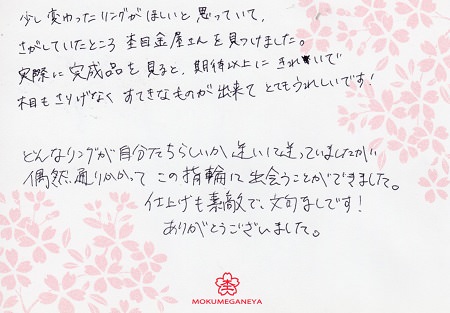 少し変わったリングがほしいと思っていて、
さがしていたところ 杢目金屋さんを見つけました。
実際に完成品を見ると、期待以上に きれいで
木目もさりげなく すてきなものが出来て とてもうれしいです！
どんなリングが自分たちらしいか 迷いに迷っていましたが
偶然通りかかって この指輪に出会うことができました。
仕上げも素敵で、文句なしです！
ありがとうございました。
杢
MOKUMEGANEYA